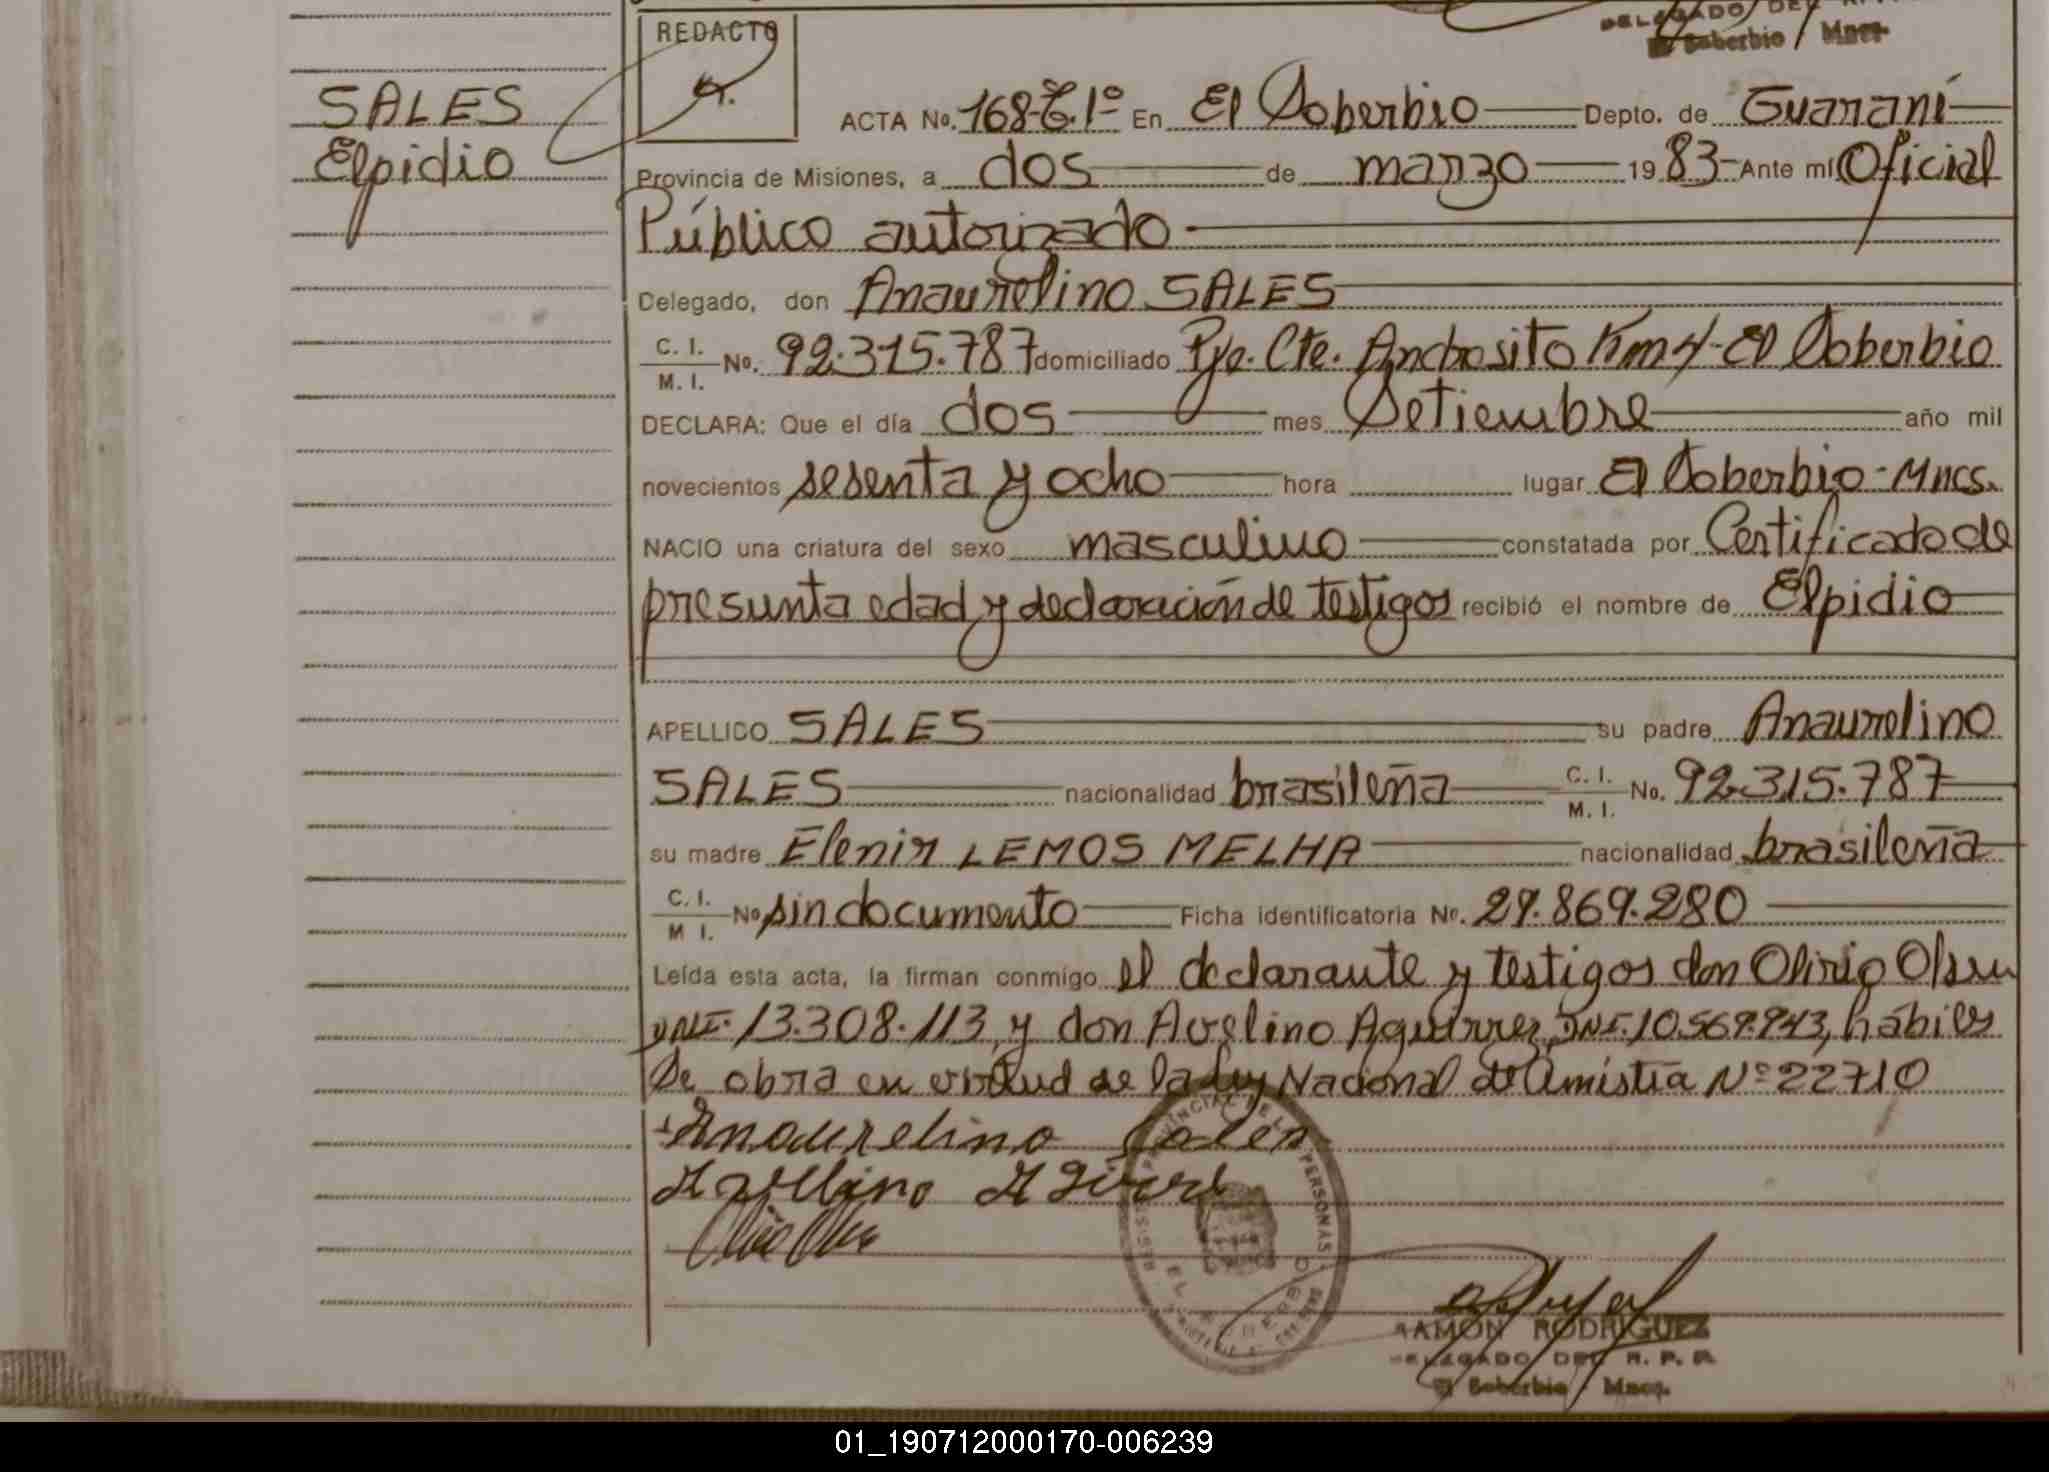 DELEGADO DEL
El Soberbio Mnes.
REDACTO
SALES
Elpidio
ACTA No. 168-T.1º En El Soberbio Depto. de Guaraní
Provincia de Misiones, a dos de marzo 1983 Ante mí Oficial
Público autorizado
Delegado, don Anaurelino SALES
C. I. / M. I. No. 92.315.787 domiciliado Pje. Cte. Andresito Km 4 - El Soberbio
DECLARA: Que el día dos mes Setiembre año mil
novecientos sesenta y ocho hora lugar El Soberbio - Mnes.
NACIO una criatura del sexo masculino constatada por Certificado de
presunta edad y declaración de testigos recibió el nombre de Elpidio
APELLIDO SALES su padre Anaurelino
SALES nacionalidad brasileña C. I. / M. I. No. 92.315.787
su madre Elenir LEMOS MELHA nacionalidad brasileña
C. I. / M I. No sin documento Ficha identificatoria No. 29.869.280
Leída esta acta, la firman conmigo el declarante y testigos don Olirio
DNI. 13.308.113, y don Avelino Aguirrez, DNI. 10.569.943, hábiles
Se obra en virtud de la Ley Nacional de Amistia Nº 22710
Anaurelino Sales
Avellino
RAMON RODRIGUEZ
DELEGADO DEL R. P. P.
El Soberbio Mnes.
01_190712000170-006239